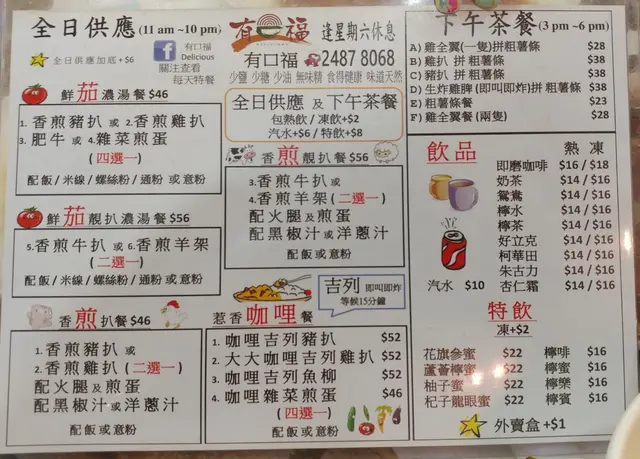 全日供應 (11 am ~10 pm)
全日供應加底 +$6
有口福
Delicious
關注查看
每天特餐
有 福
逢星期六休息
有口福 2487 8068
少鹽 少糖 少油 無味精 食得健康 味道天然
全日供應 及 下午茶餐
包熱飲 / 凍飲+$2
汽水+$6 / 特飲+$8
鮮茄濃湯餐 $46
1.香煎豬扒 或 2.香煎雞扒
3.肥牛 或 4.雜菜煎蛋
(四選一)
配飯 / 米線 / 螺絲粉 / 通粉 或意粉
鮮茄靚扒濃湯餐 $56
5.香煎牛扒 或 6.香煎羊架
(二選一)
配飯 / 米線 / 螺絲粉 / 通粉 或意粉
香煎扒餐 $46
1.香煎豬扒 或
2.香煎雞扒 (二選一)
配火腿 及 煎蛋
配黑椒汁 或 洋蔥汁
配飯或意粉
香煎靚扒餐 $56
3.香煎牛扒 或
4.香煎羊架 (二選一)
配火腿 及 煎蛋
配黑椒汁 或 洋蔥汁
配飯或意粉
吉列 即叫即炸
等候15分鐘
惹香咖哩餐
1. 咖哩吉列豬扒 $52
2. 大大咖哩吉列雞扒 $52
3. 咖哩吉列魚柳 $52
4. 咖哩雜菜煎蛋 $46
(四選一)
配飯或意粉
下午茶餐 (3 pm ~6 pm)
A) 雞全翼(一隻)拼粗薯條 $28
B) 雞扒 拼 粗薯條 $38
C) 豬扒 拼 粗薯條 $38
D) 生炸雞髀 (即叫即炸)拼 粗薯條 $38
E) 粗薯條餐 $23
F) 雞全翼餐 (兩隻) $28
飲品 熱 凍
即磨咖啡 $16 / $18
奶茶 $14 / $16
鴛鴦 $14 / $16
檸水 $14 / $16
檸茶 $14 / $16
好立克 $14 / $16
柯華田 $14 / $16
朱古力 $14 / $16
汽水 $10 杏仁霜 $14 / $16
特飲
凍+$2
花旗參蜜 $22 檸啡 $16
蘆薈檸蜜 $22 檸蜜 $16
柚子蜜 $22 檸樂 $16
杞子龍眼蜜 $22 檸賓 $16
外賣盒 +$1